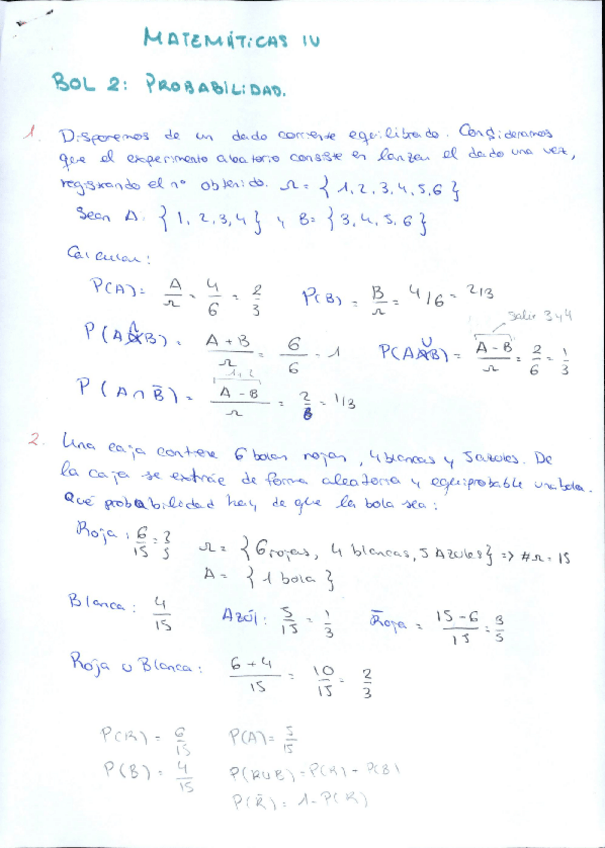 MATEMÁTICAS IV
BOL 2: PROBABILIDAD.
1. Disponemos de un dado corriente equilibrado. Consideramos
que el experimento aleatorio consiste en lanzar el dado una vez,
registrando el nº obtenido. Ω = { 1, 2, 3, 4, 5, 6 }
Sean A: { 1, 2, 3, 4 } y B = { 3, 4, 5, 6 }
Calcular:
P(A) = A/Ω = 4/6 = 2/3 P(B) = B/Ω = 4/6 = 2/3
salir 3 y 4
P(A∩B) = A+B/Ω = 6/6 = 1 P(A∪B) = A-B/Ω = 2/6 = 1/3
1 y 2
P(A∩B̄) = A-B/Ω = 2/6 = 1/3
2. Una caja contiene 6 bolas rojas, 4 blancas y 5 azules. De
la caja se extráe de forma aleatoria y equiprobable una bola.
Qué probabilidad hay de que la bola sea:
Roja: 6/15 = Ω = { 6 rojas, 4 blancas, 5 Azules } => #Ω = 15
A = { 1 bola }
Blanca: 4/15 Azúl: 5/15 = 1/3 R̄oja = 15-6/15 = 3/5
Roja o Blanca: 6+4/15 = 10/15 = 2/3
P(R) = 6/15 P(A) = 5/15
P(B) = 4/15 P(R∪B) = P(R) - P(B)
P(R̄) = 1 - P(R)